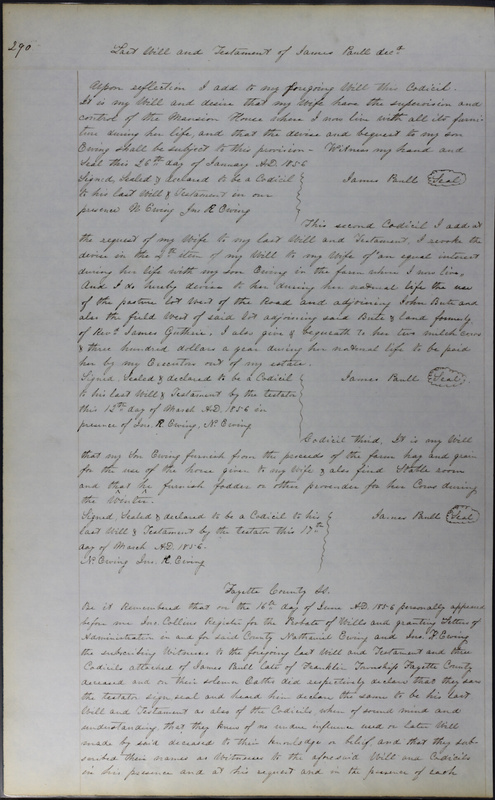 290
Last Will and Testament of James Paull decd
Upon reflection I add to my foregoing Will this Codicil.
It is my Will and desire that my Wife have the supervision and
control of the Mansion House where I now live with all its furni-
ture during her life, and that the devise and bequest to my son
Ewing shall be subject to this provision - Witness my hand and
Seal this 26th day of January A.D. 1856
Signed, Sealed & declared to be a Codicil
to his last Will & Testament in our
presence N. Ewing Jno. K. Ewing
James Paull Seal
This second Codicil I add at
the request of my Wife to my last Will and Testament, I revoke the
devise in the 2th item of my Will to my Wife of an equal interest
during her life with my son Ewing in the farm where I now live,
And I do hereby devise to her during her natural life the use
of the pasture lot West of the Road and adjoining John Bute and
also the field West of said lot adjoining said Bute & land formerly
of Revd James Guthrie, I also give & bequeath to her two milch cows
& three hundred dollars a year during her natural life to be paid
her by my Executors out of my estate.
Signed, Sealed & declared to be a Codicil
to his last Will & Testament by the testator
this 12th day of March A.D. 1856 in
presence of Jno. K. Ewing, N. Ewing
James Paull Seal
Codicil third, It is my Will
that my Son Ewing furnish from the proceeds of the farm hay and grain
for the use of the horse given to my Wife & also find Stable room
and that he furnish fodder or other provender for her Cows during
the Winter.
Signed, Sealed & declared to be a Codicil to his
last Will & Testament by the testator this 17th
day of March A.D. 1856.
N. Ewing Jno. K. Ewing
James Paull Seal
Fayette County Ss.
Be it Remembered that on the 16th day of June A.D. 1856 personally appeared
before me Jno. Collins Register for the Probate of Wills and granting Letters of
Administration in and for said County Nathaniel Ewing and Jno. K Ewing
the subscribing Witnesses to the foregoing last Will and Testament and three
Codicils attached of James Paull late of Franklin Township Fayette County
deceased and on their solemn Oaths did respectively declare that they saw
the testator sign seal and heard him declare the same to be his last
Will and Testament as also of the Codicils when of sound mind and
understanding, that they knew of no undue influence used or later Will
made by said deceased to their knowledge or belief and that they sub-
scribed their names as Witnesses to the aforesaid Will and Codicils
in his presence and at his request and in the presence of each